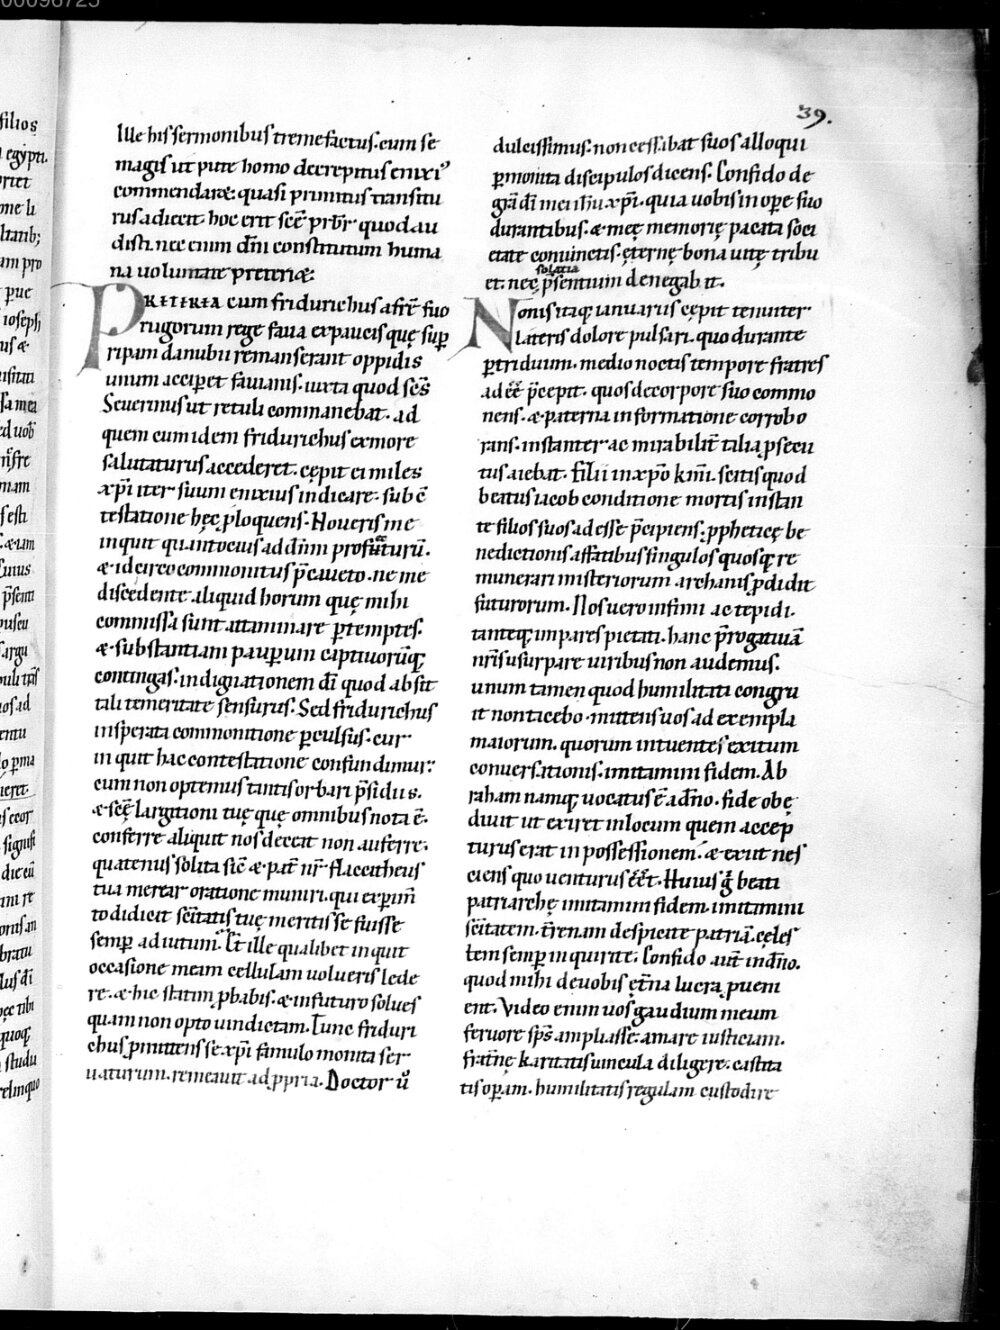 39.
Ille his sermonibus tremefactus. cum se
magis ut pute homo decrepitus enixiꝰ
commendaræ: quasi primitus transitu
rus adiecit. hoc erit sc̄ē pr̄br̄ quod au
disti. nec enim dn̄i constitutum huma
na uoluntate preteriæ:
PRETEREA cum friduricħus a fr̄e suo
rugorum rege faua ex paucis quę suꝑ
ripam danubii remanserant oppidis
unum acciperet fauianis. iuxta quod sc̄s
Seuerinus ut retuli commanebat. ad
quem cum idem fridurichus ex more
salutaturus accederet. cępit ei miles
xp̄i iter suum enixius indicare. sub c̄
testatione hęc ꝓloquens. Noueris me
inquit quantocius ad dn̄m profecturū.
æ idcirco commonitus p̄caueto. ne me
discedente aliquid horum quę mihi
commissa sunt attaminare ꝑtemptes.
æ substantiam pauꝑum captiuorūq;
contingas. indignationem dī quod absit
tali temeritate sensurus. Sed fridurichus
insperata commonitione ꝑculsus. cur
inquit hac contestatione confundimur:
cum non optemus tantis orbari p̄sidiis.
æ sc̄ę largitioni tuę quę omnibus nota ē.
conferre aliquit nos deceat non auferre.
quatenus solita sic̄ æ pat̄ nr̄ flaccitheus
tua merear oratione muniri. qui expim̄
to didicit sc̄itatis tuę meritis se fuisse
semꝑ adiutum. Et̄ ille qualibet inquit
occasione meam cellulam uolueris lede
re. æ hic statim ꝓbabis. æ in futuro solues
quam non opto uindictam. Tunc friduri
chus ꝓmittens se xp̄i famulo monita ser
uaturum. remeauit ad ꝓpria. Doctor ū
dulcissimus. non cessabat suos alloqui
ꝑmonita discipulos dicens. Confido de
gr̄a dī mei ih̄u xp̄i. quia uobis in oꝑe suo
durantibus. æ meę memorię pacata soci
etate comiinetis. ęternę bona uitę tribu
et. nec solatia p̄sentium denegabit.
Nonis itaq; ianuarus cępit tenuiter
lateris dolore pulsari. quo durante
ꝑ triduum. medio noctis tempore fratres
adeē̄ p̄cepit. quos de corpore suo commo
nens. æ paterna informatione corrobo
rans. instanter ac mirabilit̄ talia ꝓsecu
tus aiebat. filii in xp̄o kmī. scitis quod
beatus iacob conditione mortis instan
te filios suos adesse p̄cipiens. ꝓphetice be
nedictionis affatibus singulos quosq; re
munerari misteriorum archanis ꝓdidit
futurorum. Nos uero infimi ac tepidi.
tanteq; impares pietati. hanc p̄rogatiuā
nr̄is usurpare uiribus non audemus.
unum tamen quod humilitati congru
it non tacebo. mittens uos ad exempla
maiorum. quorum intuentes exitum
conuersationis. imitamini fidem. Ab
raham namq; uocatus ē a dn̄o. fide obę
diuit ut exiret in locum quem acceꝑ
turus erat in possessionem. æ exiit nes
ciens quo uenturus eēt. Huius g̊ beati
patriarchę imitamini fidem. imitamini
sc̄itatem. t̄renam despicite patriā. cęles
tem semꝑ inquirite. Confido aut̄ in dn̄o.
quod mihi de uobis ęt̄na lucra ꝓueni
ent. Video enim uos gaudium meum
feruore sp̄s ampliasse. amare iusticiam.
frat̄nę karitatis uincula diligere. castita
tis oꝑam. humilitatis regulam custodire